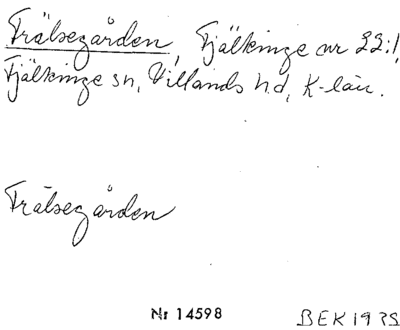 Frälsegården, Fjälkinge nr 22:1,
Fjälkinge sn, Villands hd, K-län.
Frälsegården
Nr 14598
BEK 1935